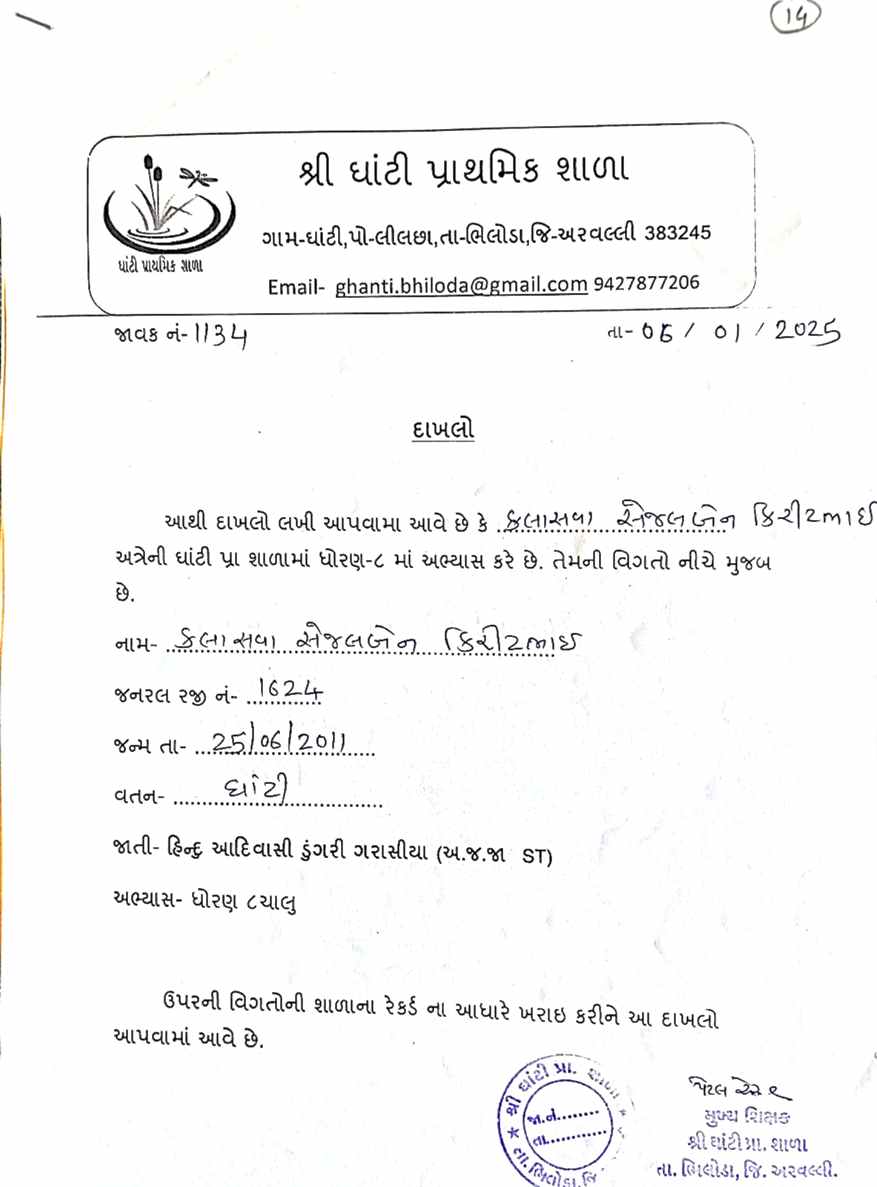 14
શ્રી ઘાંટી પ્રાથમિક શાળા
ગામ-ઘાંટી,પો-લીલછા,તા-ભિલોડા,જિ-અરવલ્લી 383245
ઘાંટી પ્રાથમિક શાળા
Email- ghanti.bhiloda@gmail.com 9427877206
જાવક નં-1134 તા- 06 / 01 / 2025
દાખલો
આથી દાખલો લખી આપવામા આવે છે કે કલાસવા સેજલબેન કિરીટભાઈ
અત્રેની ઘાંટી પ્રા શાળામાં ધોરણ-૮ માં અભ્યાસ કરે છે. તેમની વિગતો નીચે મુજબ
છે.
નામ- કલાસવા સેજલબેન કિરીટભાઈ
જનરલ રજી નં- 1624
જન્મ તા- 25/06/2011
વતન- ઘાંટી
જાતી- હિન્દુ આદિવાસી ડુંગરી ગરાસીયા (અ.જ.જા ST)
અભ્યાસ- ધોરણ ૮ચાલુ
ઉપરની વિગતોની શાળાના રેકર્ડ ના આધારે ખરાઇ કરીને આ દાખલો
આપવામાં આવે છે.
શ્રી ઘાંટી પ્રા. શાળા
જા.નં........
તા...........
તા. ભિલોડા, જિ
પટેલ
મુખ્ય શિક્ષક
શ્રી ઘાંટી પ્રા. શાળા
તા. ભિલોડા, જિ. અરવલ્લી.